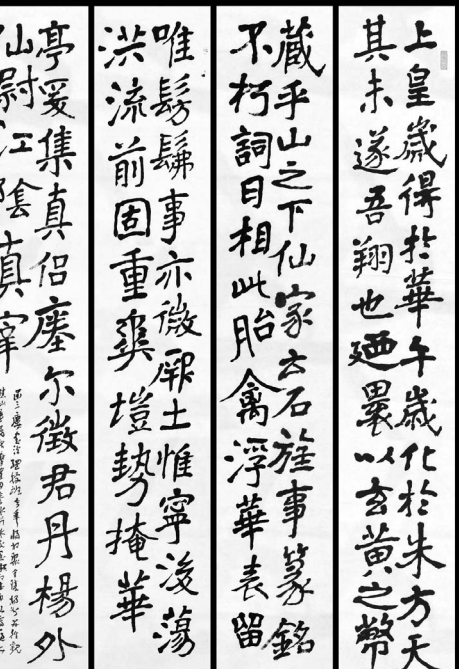 上皇歲得於華午歲化於朱方天
其未遂吾翔也迺裹以玄黃之幣
藏乎山之下仙家云石旌事篆銘
不朽詞曰相此胎禽浮華表留
唯髣髴事亦微厥土惟寧後蕩
洪流前固重爽塏勢掩華
亭爰集真侶瘞尔徵君丹楊外
仙尉江陰真宰